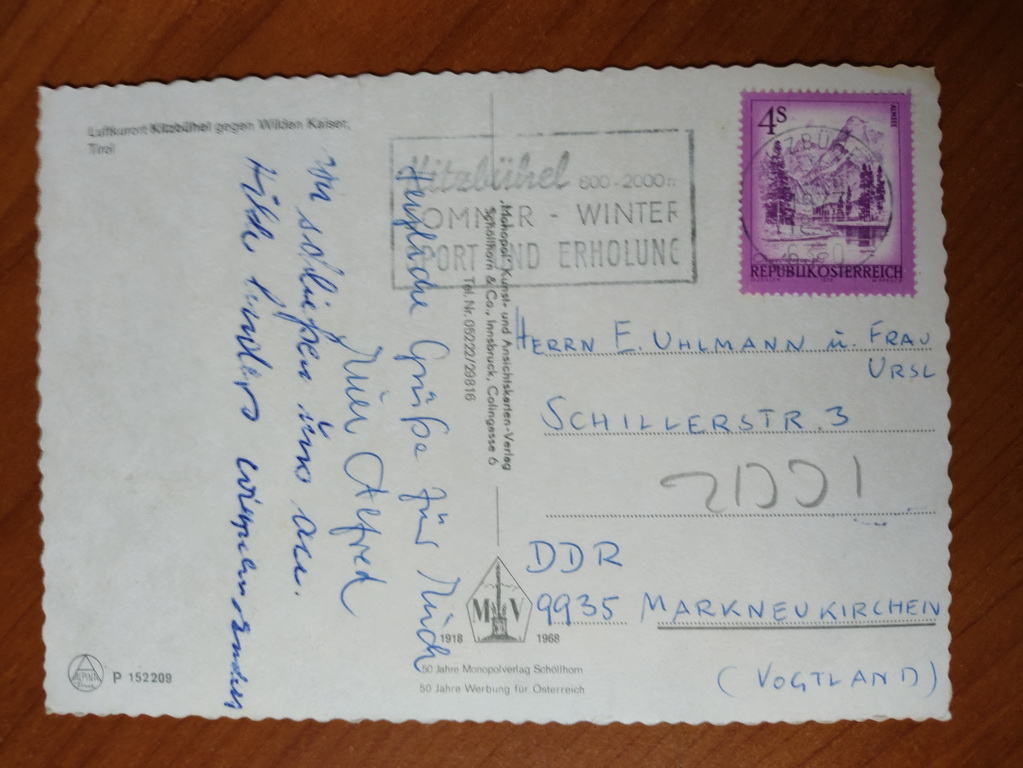 Luftkurort Kitzbühel gegen Wilden Kaiser,
Tirol
Herzliche Grüße für Euch
Euer Alfred
Wir schließen uns an.
Kitzbühel 800-2000m
SOMMER - WINTER
SPORT UND ERHOLUNG
"Monopol" Kunst- und Ansichtskarten-Verlag
Schöllhorn & Co., Innsbruck, Colingasse 6
Tel. Nr. 05222/29816
4S
ALMSEE
REPUBLIK ÖSTERREICH
HERRN E. UHLMANN u. FRAU
URSL
SCHILLERSTR. 3
DDR
9935 MARKNEUKIRCHEN
(VOGTLAND)
M V
1918 1968
50 Jahre Monopolverlag Schöllhorn
50 Jahre Werbung für Österreich
ALPINA
P 152209